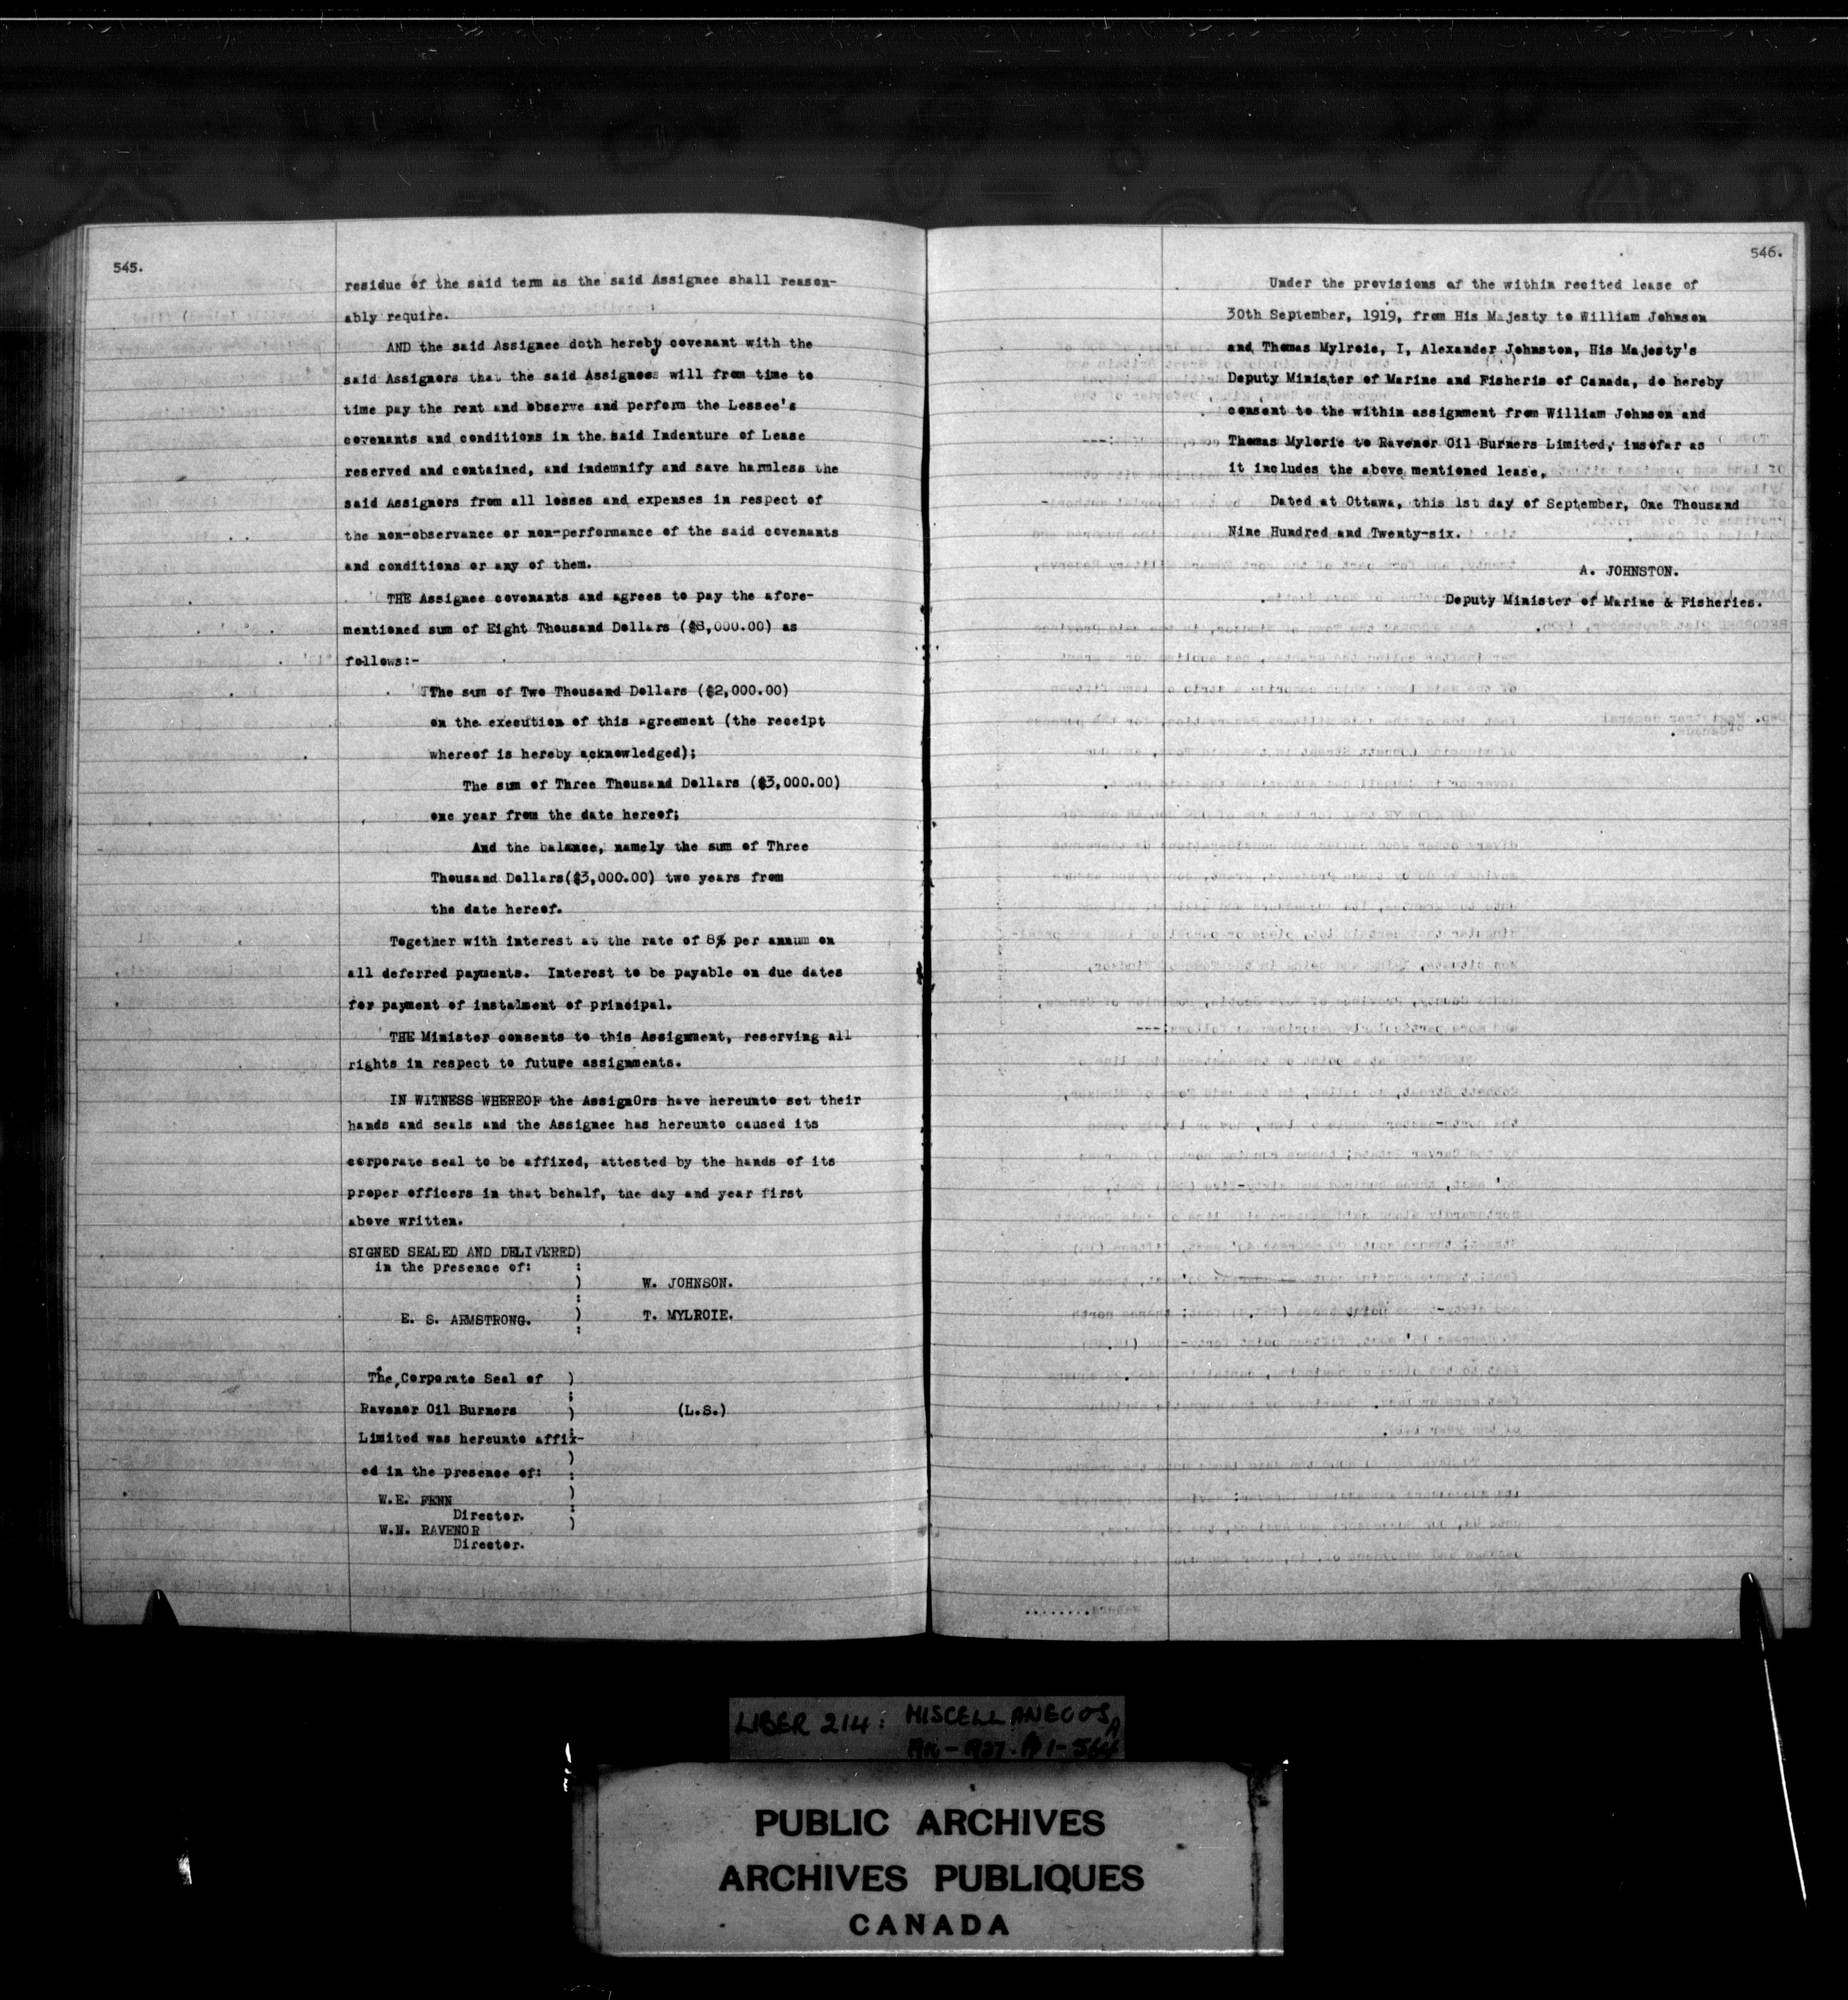 545.
residue of the said term as the said Assignee shall reason-
ably require.
AND the said Assignee doth hereby covenant with the
said Assignors that the said Assignees will from time to
time pay the rent and observe and perform the Lessee's
covenants and conditions in the said Indenture of Lease
reserved and contained, and indemnify and save harmless the
said Assignors from all losses and expenses in respect of
the non-observance or non-performance of the said covenants
and conditions or any of them.
THE Assignee covenants and agrees to pay the afore-
mentioned sum of Eight Thousand Dollars ($8,000.00) as
follows:-
The sum of Two Thousand Dollars ($2,000.00)
on the execution of this agreement (the receipt
whereof is hereby acknowledged);
The sum of Three Thousand Dollars ($3,000.00)
one year from the date hereof;
And the balance, namely the sum of Three
Thousand Dollars($3,000.00) two years from
the date hereof.
Together with interest at the rate of 8% per annum on
all deferred payments. Interest to be payable on due dates
for payment of instalment of principal.
THE Minister consents to this Assignment, reserving all
rights in respect to future assignments.
IN WITNESS WHEREOF the AssignOrs have hereunto set their
hands and seals and the Assignee has hereunto caused its
corporate seal to be affixed, attested by the hands of its
proper officers in that behalf, the day and year first
above written.
SIGNED SEALED AND DELIVERED)
in the presence of: :
) W. JOHNSON.
:
E. S. ARMSTRONG. ) T. MYLROIE.
:
The Corporate Seal of )
:
Ravenor Oil Burners ) (L.S.)
Limited was hereunto affix-:
)
ed in the presence of: :
W.E. FENN )
Director. :
W.N. RAVENOR )
Director.
546.
Under the provisions of the within recited lease of
30th September, 1919, from His Majesty to William Johnson
and Thomas Mylroie, I, Alexander Johnston, His Majesty's
Deputy Minister of Marine and Fisheris of Canada, do hereby
consent to the within assignment from William Johnson and
Thomas Mylorie to Ravenor Oil Burners Limited, insofar as
it includes the above mentioned lease.
Dated at Ottawa, this 1st day of September, One Thousand
Nine Hundred and Twenty-six.
A. JOHNSTON.
Deputy Minister of Marine & Fisheries.
LIBER 214: MISCELLANEOUS A
1927. P 1-564
PUBLIC ARCHIVES
ARCHIVES PUBLIQUES
CANADA